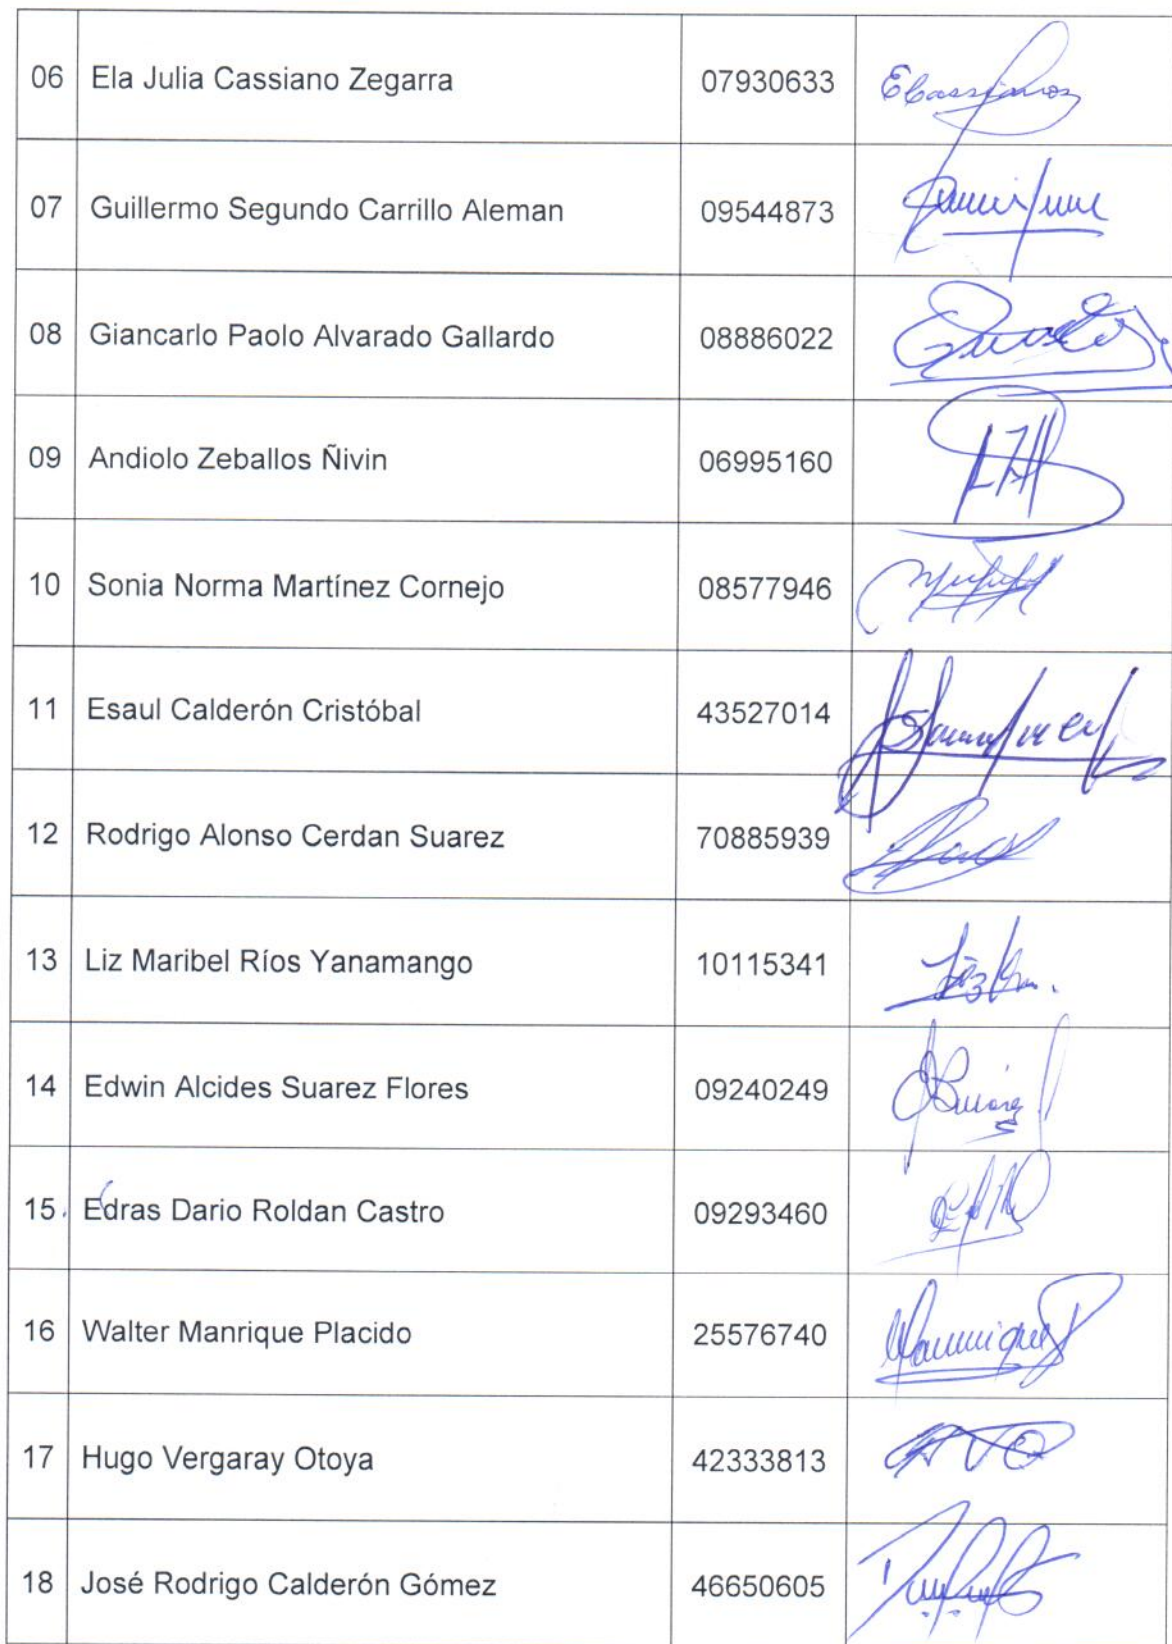 06 Ela Julia Cassiano Zegarra 07930633
07 Guillermo Segundo Carrillo Aleman 09544873
08 Giancarlo Paolo Alvarado Gallardo 08886022
09 Andiolo Zeballos Ñivin 06995160
10 Sonia Norma Martínez Cornejo 08577946
11 Esaul Calderón Cristóbal 43527014
12 Rodrigo Alonso Cerdan Suarez 70885939
13 Liz Maribel Ríos Yanamango 10115341
14 Edwin Alcides Suarez Flores 09240249
15. Edras Dario Roldan Castro 09293460
16 Walter Manrique Placido 25576740
17 Hugo Vergaray Otoya 42333813
18 José Rodrigo Calderón Gómez 46650605